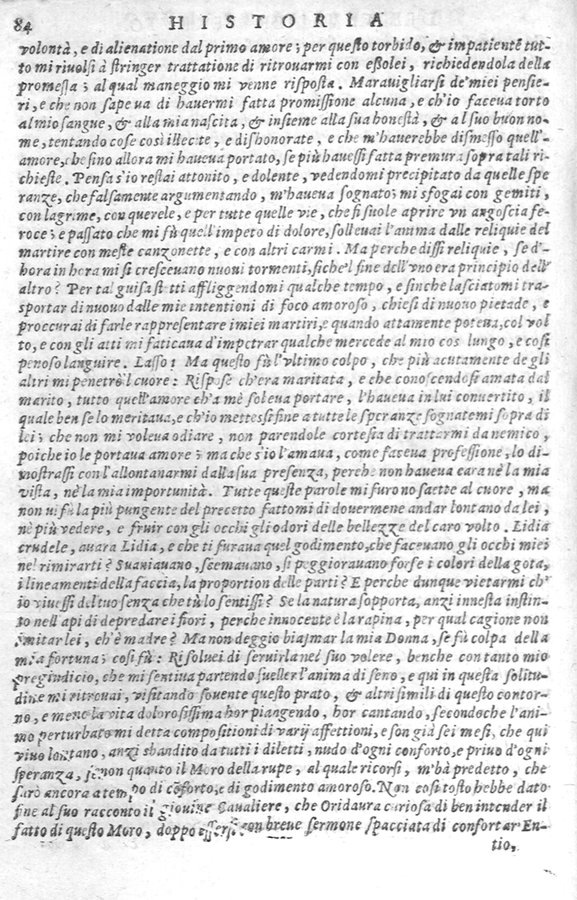 84 HISTORIA
volontà, e di alienatione dal primo amore; per questo torbido, & impatiente tut-
to mi riuolsi à stringer trattatione di ritrouarmi con essolei, richiedendola della
promessa; al qual maneggio mi venne risposta. Marauigliarsi de'miei pensie-
ri, e che non sapeua di hauermi fatta promissione alcuna, e ch'io faceua torto
al mio sangue, & alla mia nascita, & insieme alla sua honestà, & al suo buon no-
me, tentando cose così illecite, e dishonorate, e che m'hauerebbe dismesso quell'
amore, che sino allora mi haueua portato, se più hauessi fatta premura sopra tali ri-
chieste. Pensa s'io restai attonito, e dolente, vedendomi precipitato da quelle spe
ranze, che falsamente argumentando, m'haueua sognato; mi sfogai con gemiti,
con lagrime, con querele, e per tutte quelle vie, che si suole aprire vn angoscia fe-
roce; e passato che mi fù quell'impeto di dolore, solleuai l'anima dalle reliquie del
martire con meste canzonette, e con altri carmi. Ma perche dissi reliquie, se d'-
hora in hora mi si cresceuano nuoui tormenti, siche'l fine dell'vno era principio dell'
altro? Per tal guisa stetti affliggendomi qualche tempo, e sinche lasciatomi tra-
sportar di nuouo dalle mie intentioni di foco amoroso, chiesi di nuouo pietade, e
proccurai di farle rappresentare i miei martiri, e quando attamente poteua, col vol
to, e con gli atti mi faticaua d'impetrar qualche mercede al mio cos lungo, e così
penoso languire. Lasso! Ma questo fù l'vltimo colpo, che più acutamente de gli
altri mi penetrò'l cuore: Rispose ch'era maritata, e che conoscendosi amata dal
marito, tutto quell'amore ch'à me soleua portare, l'haueua in lui conuertito, il
quale ben se lo meritaua, e ch'io mettessi fine a tutte le speranze sognatemi sopra di
lei; che non mi voleua odiare, non parendole cortesia di trattarmi da nemico,
poiche io le portaua amore; ma che s'io l'amaua, come faceua professione, lo di-
mostrassi con l'allontanarmi dalla sua presenza, perche non haueua cara nè la mia
vista, nè la mia importunità. Tutte queste parole mi furono saette al cuore, ma
non vi fù la più pungente del precetto fattomi di douermene andar lontano da lei,
nè più vedere, e fruir con gli occhi gli odori delle bellezze del caro volto. Lidia
crudele, auara Lidia, e che ti furaua quel godimento, che faceuano gli occhi miei
nel rimirarti? Suaniauano, scemauano, si peggiorauano forse i colori della gota,
i lineamenti della faccia, la proportion delle parti? E perche dunque vietarmi ch'
io viuessi del tuo senza che tù lo sentissi? Se la natura sopporta, anzi innesta instin-
to nell'api di depredare i fiori, perche innocente è la rapina, per qual cagione non
imitar lei, ch'è madre? Ma non deggio biasmar la mia Donna, se fù colpa della
mia fortuna; così fù: Risoluei di seruirla nel suo volere, benche con tanto mio
pregindicio, che mi sentiua partendo sueller l'anima di seno, e qui in questa solitu-
dine mi ritrouai, visitando souente questo prato, & altri simili di questo contor-
no, e meno la vita dolorosissima hor piangendo, hor cantando, secondoche l'ani-
mo perturbato mi detta compositioni di varij affettioni, e son già sei mesi, che qui
viuo lontano, anzi sbandito da tutti i diletti, nudo d'ogni conforto, e priuo d'ogni
speranza, se non quanto il Moro della rupe, al quale ricorsi, m'hà predetto, che
sarò ancora a tempo di cōforto, e di godimento amoroso. Non così tosto hebbe dato
fine al suo racconto il giouine Caualiere, che Oridaura curiosa di ben intender il
fatto di questo Moro, doppo essersi con breue sermone spacciata di confortar En-
tio,